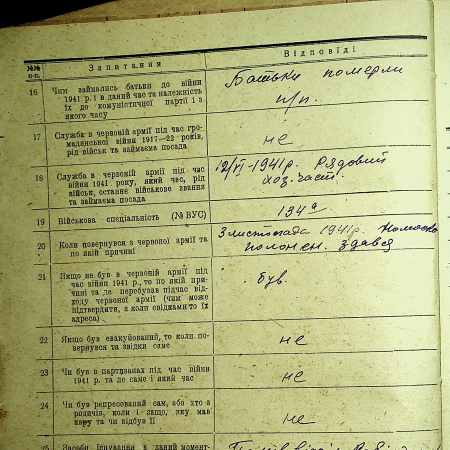 №№ п-п. Запитання Відповіді
16 Чим займались батьки до війни
1941 р. і в даний час та належність
їх до комуністичної партії і з
якого часу
Батьки померли
п/п.
17 Служба в червоній армії під час гро-
мадянської війни 1917—22 років,
рід військ та займаєма посада
не
18 Служба в червоній армії під час
війни 1941 року, який час, рід
військ, останнє військове звання
та займаєма посада
12/VI-1941р. Рядовий
хоз. част.
19 Військова спеціяльність (№ ВУС)
134а
20 Коли повернувся в червоної армії та
по якій причині
3 листопада 1941р.
полонен. здався
21 Якщо не був в червоній армії під
час війни 1941 р., то по якій при-
чині та де перебував підчас від-
ходу червоної армії (чим може
підтвердити, а коли свідками то їх
адреса)
був.
22 Якщо був евакуйований, то коли по-
вернувся та звідки саме
не
23 Чи був в партизанах під час війни
1941 р. та де саме і який час
не
24 Чи був репресований сам, або хто з
родичів, коли і защо, яку мав
кару та чи відбув її
не
25 Засоби існування в даний момент